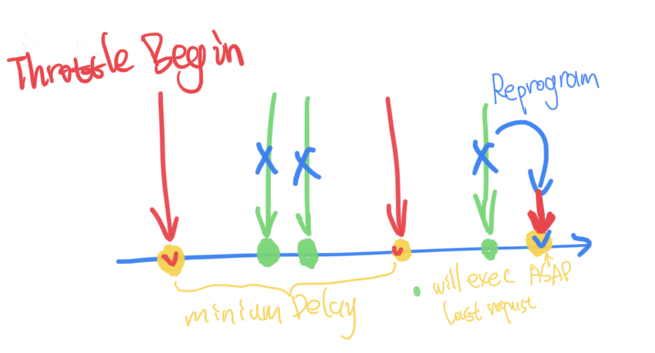 Throttle Begin
Reprogram
minium Delay
will exec ASAP
last request